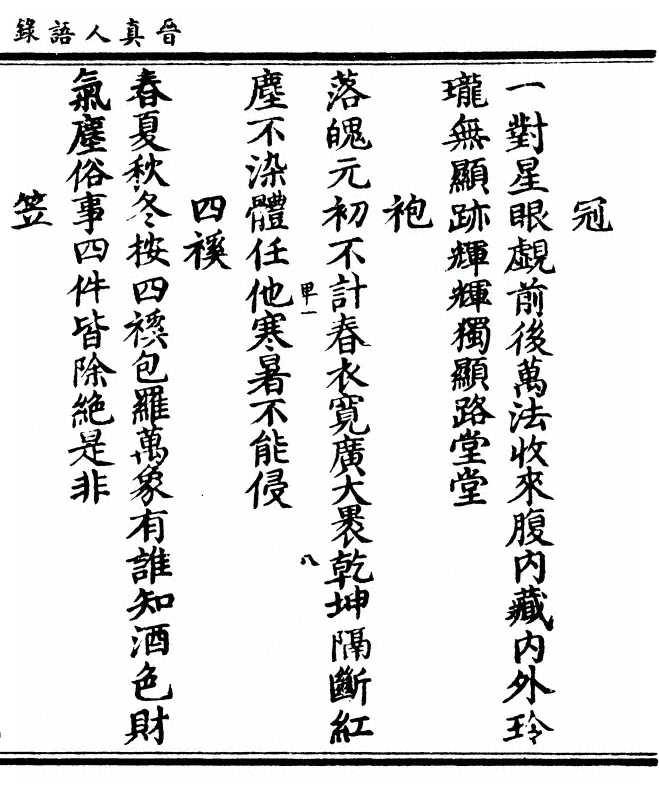 晉真人語錄
冠
一對星眼覷前後萬法收來腹内藏内外玲
瓏無顯跡輝輝獨顯路堂堂
袍
落魄元初不計春衣寬廣大褁乾坤隔斷紅
甲一
八
塵不染體任他寒暑不能侵
四
春夏秋冬按四包羅萬象有誰知酒色財
氣塵俗事四件皆除絶是非
笠